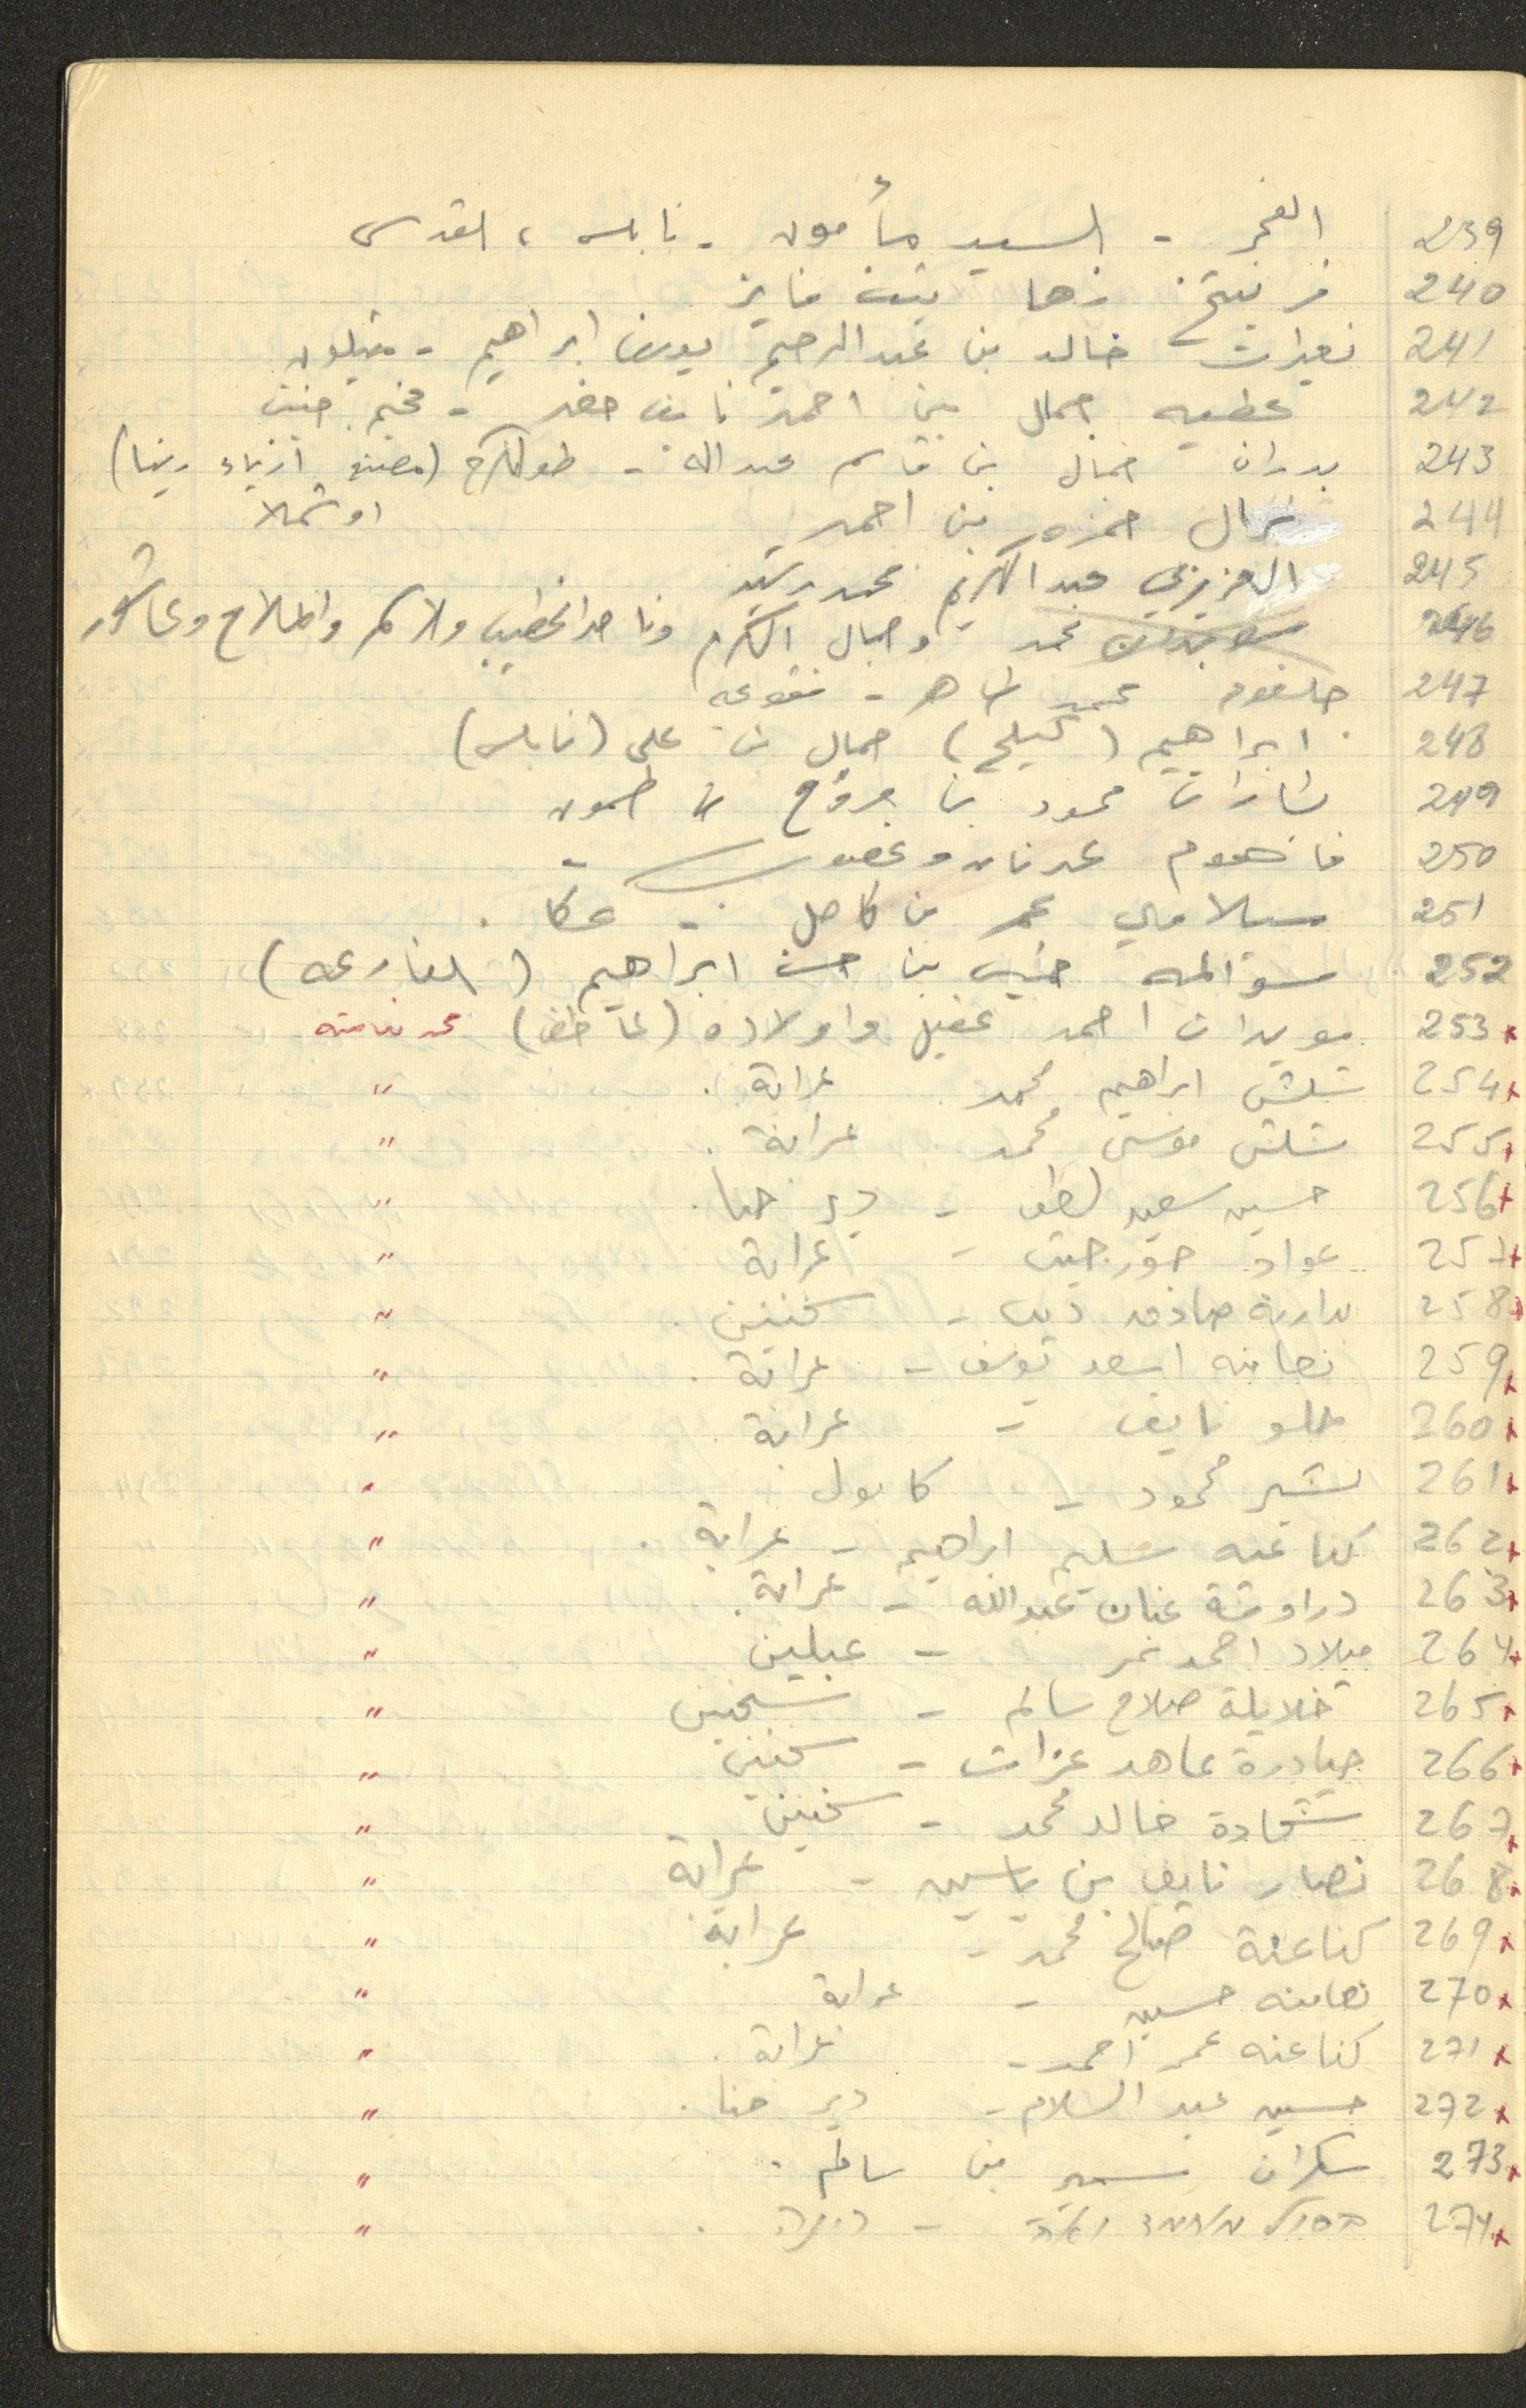 239 الفجر - السيد مأمون - نابلس ، القدس
240 فريتخ زها بنت فايز
241 نعيرات خالد بن عبد الرحيم يوسف ابراهيم - ميثلون
242 عطيه جمال بن احمد نايف خضر - مخيم جنين
243 بدران جمال بن قاسم عبد الله - طولكرم (مصنع ازياء رينا)
244 نزال حمزه بن احمد او شملا
245 العزيزي عبد الكريم محمد رشيد
246 محمد وجمال الكرم وناهد الخطيب والملاح وعاشور
247 محمد شاهر -
248 ابراهيم ( ) جمال بن علي (نابلس)
249 بشارات محمود بن طمون
250 فاهوم عدنان وغصوب -
251 سلامي عمر بن كامل - عكا .
252 سوالمه بن حسن ابراهيم (الفارعه)
253 سويدان احمد عقيل واولاده ( ) محمد نعامنه
254 شلش ابراهيم محمد عرابة . "
255 شلش موسى محمد عرابة . "
256 حسين سعيد لطفي - دير حنا . "
257 عواد جورجيت - عرابة "
258 بدارنة صادق ذيب - سخنين . "
259 نعامنه اسعد يوسف - عرابة . "
260 حلو نايف - عرابة "
261 بشير محمود - كابول "
262 كناعنه سليم ابراهيم - عرابة . "
263 دراوشة عنان عبد الله - عرابة . "
264 ميلاد احمد نمر - عبلين "
265 خلايلة صلاح سالم - سخنين "
266 عاهد عزات - سخنين "
267 شحادة خالد محمد - سخنين "
268 نصار نايف بن ياسين - عرابة "
269 كناعنة صالح محمد - عرابة "
270 نعامنه حسين - عرابة "
271 كناعنه عمر احمد - عرابة . "
272 حسين عبد السلام - دير حنا . "
273 سكران سمير بن سالم . "
274 - "